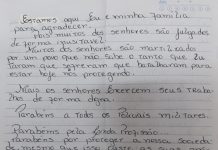 Estamos aqui Eu e minha família
para agradecer.
Pois muitos dos senhores são julgados
de forma injustavel.
Muitos dos senhores são martirizados
por um povo que não sabe o tanto que
ram que sofreram que batalharam para
estar hoje nos protegendo.
Mais os senhores Exercem seus traba
lhos de forma digna.
Parabéns a Todos os Policiais militares.
Parabéns pela linda Profissão
Parabéns por proteger a nossa Socieda